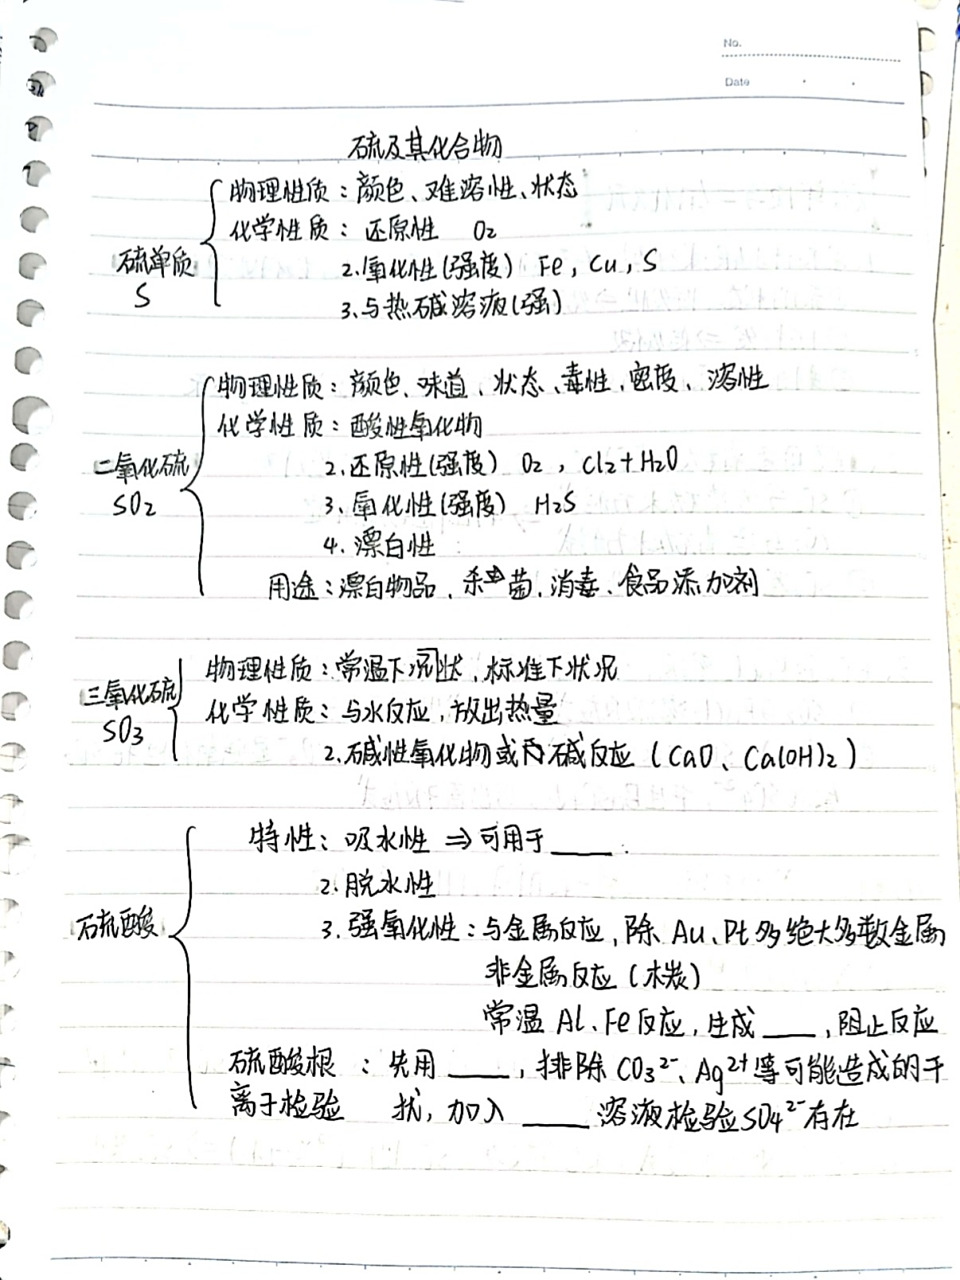 No.
Date
硫及其化合物
物理性质：颜色、难溶性、状态
化学性质：还原性 O₂
硫单质
2.氧化性(强度) Fe，Cu，S
S
3.与热碱溶液(强)
物理性质：颜色、味道、状态、毒性、密度、溶性
化学性质：酸性氧化物
二氧化硫
2.还原性(强度) O₂，Cl₂+H₂O
SO₂
3.氧化性(强度) H₂S
4.漂白性
用途：漂白物品、杀菌、消毒、食品添加剂
物理性质：常温下状，标准下状况
三氧化硫
化学性质：与水反应，放出热量
SO₃
2.碱性氧化物或碱反应 (CaO、Ca(OH)₂)
特性：吸水性 ⇒可用于____.
2.脱水性
硫酸
3.强氧化性：与金属反应，除Au、Pt绝大多数金属
非金属反应(木炭)
常温Al、Fe反应，生成____，阻止反应
硫酸根：先用____，排除CO₃²⁻、Ag²⁺等可能造成的干
离子检验 扰，加入____溶液检验SO₄²⁻存在